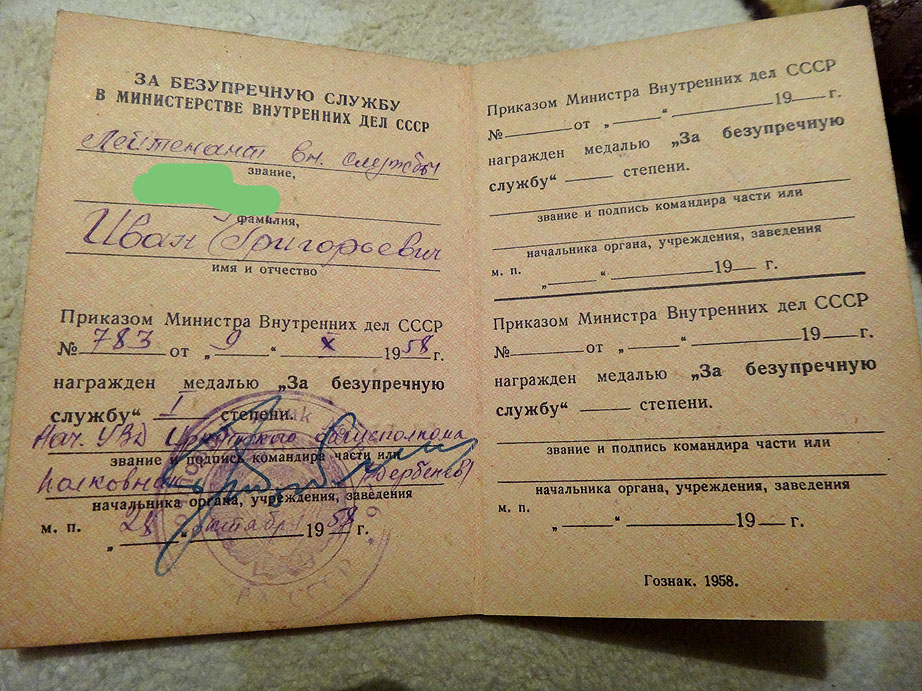 ЗА БЕЗУПРЕЧНУЮ СЛУЖБУ
В МИНИСТЕРСТВЕ ВНУТРЕННИХ ДЕЛ СССР
Лейтенант вн. службы
звание,
фамилия,
Иван Григорьевич
имя и отчество
Приказом Министра Внутренних дел СССР
№ 783 от „ 9 “ X 1958 г.
награжден медалью „За безупречную
службу“ I степени.
Нач. УВД Облисполкома
звание и подпись командира части или
полковник (Дербенев)
начальника органа, учреждения, заведения
м. п.
„ 28 “ октября 1958 г.
Приказом Министра Внутренних дел СССР
№ от „ “ 19 г.
награжден медалью „За безупречную
службу“ степени.
звание и подпись командира части или
начальника органа, учреждения, заведения
м. п.
„ “ 19 г.
Приказом Министра Внутренних дел СССР
№ от „ “ 19 г.
награжден медалью „За безупречную
службу“ степени.
звание и подпись командира части или
начальника органа, учреждения, заведения
м. п.
„ “ 19 г.
Гознак. 1958.